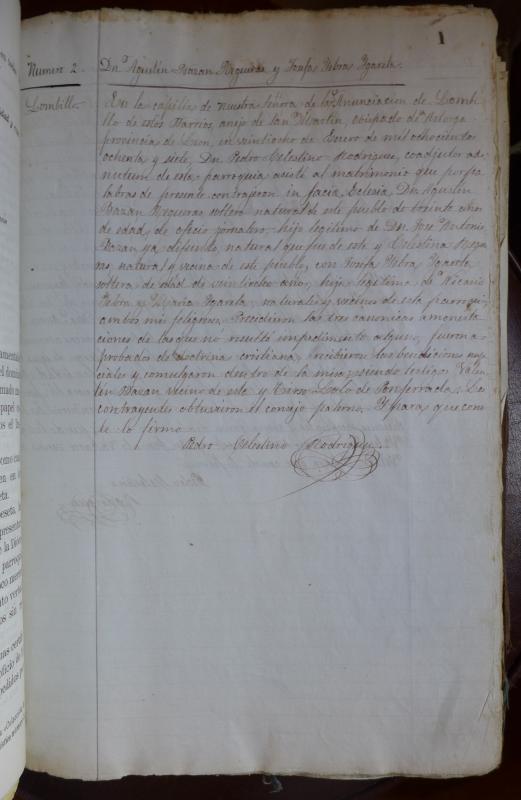 1
Numero 2. Dn. Agustin Bazan Regueras y Josefa Yebra Ygareta.
Lombillo. En la capilla de nuestra Señora de la Anunciacion de Lombi-
llo de estos Barrios, anejo de San Martin, obispado de Astorga
provincia de Leon, en veintiocho de Enero de mil ochocientos
ochenta y siete, Dn. Pedro Celestino Rodriguez, coadjutor ad-
nutum de esta parroquia asisti al matrimonio que por pa-
labras de presente contrajeron in facia Eclesia, Dn. Agustin
Bazan Regueras, soltero natural de este pueblo de treinta años
de edad, de oficio jornalero, hijo legitimo de Dn. José Antonio
Bazan ya difunto, natural que fue de este y Celestina Regue
ras, natural y vecina de este pueblo, con Josefa Yebra Ygareta,
soltera de edad de veintiocho años, hija legitima de Nicanio
Yebra y Maria Ygareta, naturales y vecinos de esta parroquia
ambos mis feligreses. Precedieron las tres canonicas amonesta
ciones de las que no resultó impedimento alguno, fueron a-
probados de doctrina cristiana, recibieron las bendiciones nup
ciales y comulgaron dentro de la misa, siendo testigos Valen-
tin Bazan vecino de este y de Ponferrada. Los
contrayentes obtuvieron el consejo paterno. Y para que cons-
te lo firmo.
Pedro Celestino Rodriguez